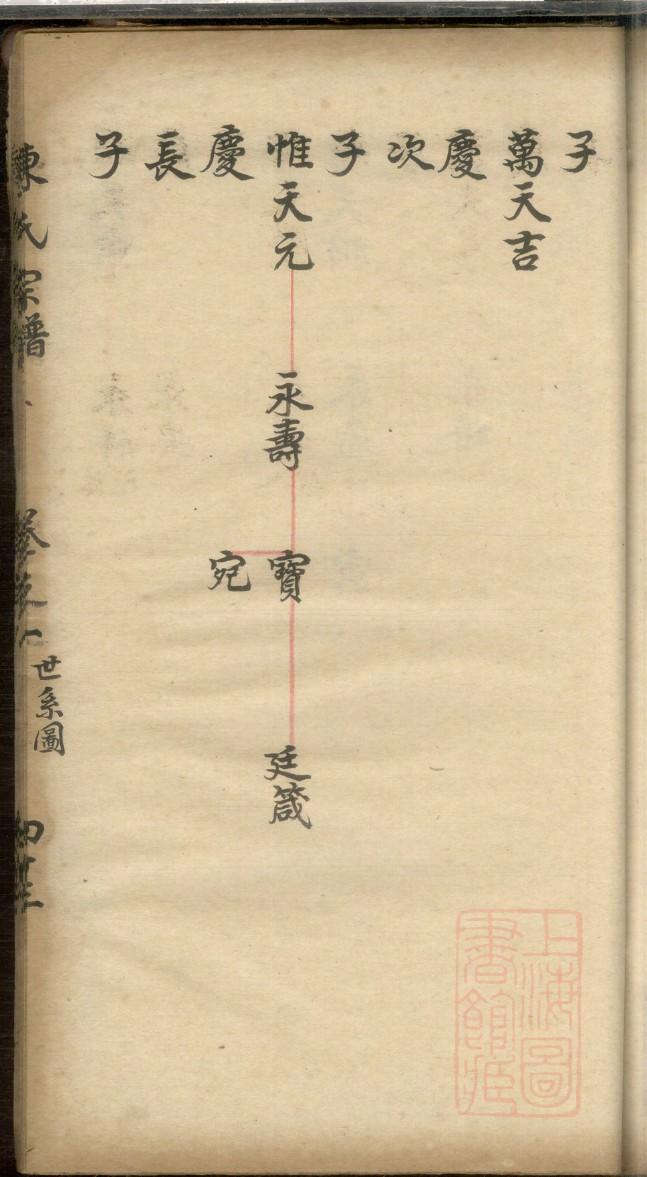 子
萬天吉
慶
次
子
惟天元 永壽 寶 廷箴
慶 宛
長
子
陳氏宗譜
世系圖
上海圖
書館藏